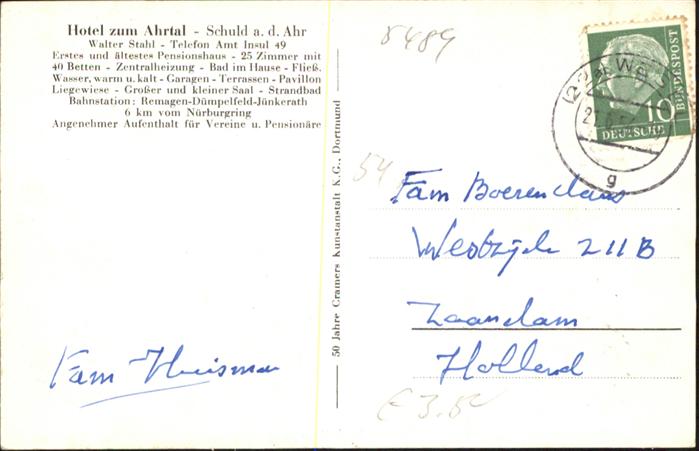 Hotel zum Ahrtal - Schuld a. d. Ahr
Walter Stahl - Telefon Amt Insul 49
Erstes und ältestes Pensionshaus - 25 Zimmer mit
40 Betten - Zentralheizung - Bad im Hause - Fließ.
Wasser, warm u. kalt - Garagen - Terrassen - Pavillon
Liegewiese - Großer und kleiner Saal - Strandbad
Bahnstation: Remagen-Dümpelfeld-Jünkerath
6 km vom Nürburgring
Angenehmer Aufenthalt für Vereine u. Pensionäre
Fam Huisman
50 Jahre Cramers Kunstanstalt K.G., Dortmund
8489
54
DEUTSCHE
BUNDESPOST
10
g
Fam Boerenclaus
Westzijde 211B
Zaandam
Holland